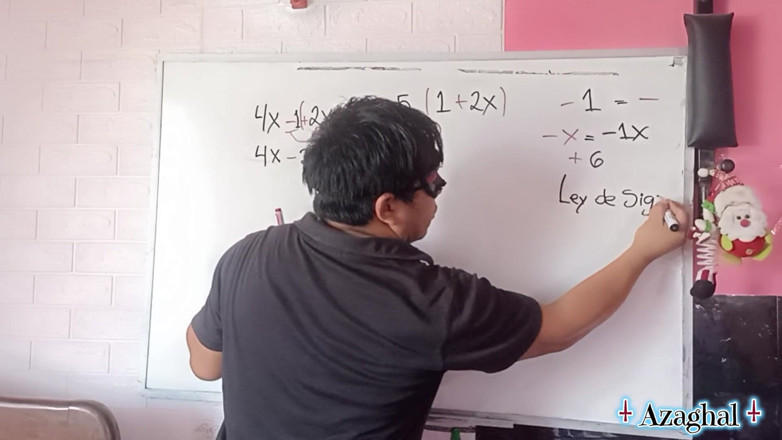 4x -1(+2x 5 (1+2x)
4x -
-1 = -
-x = -1x
+6
Ley de Sig
Azaghal